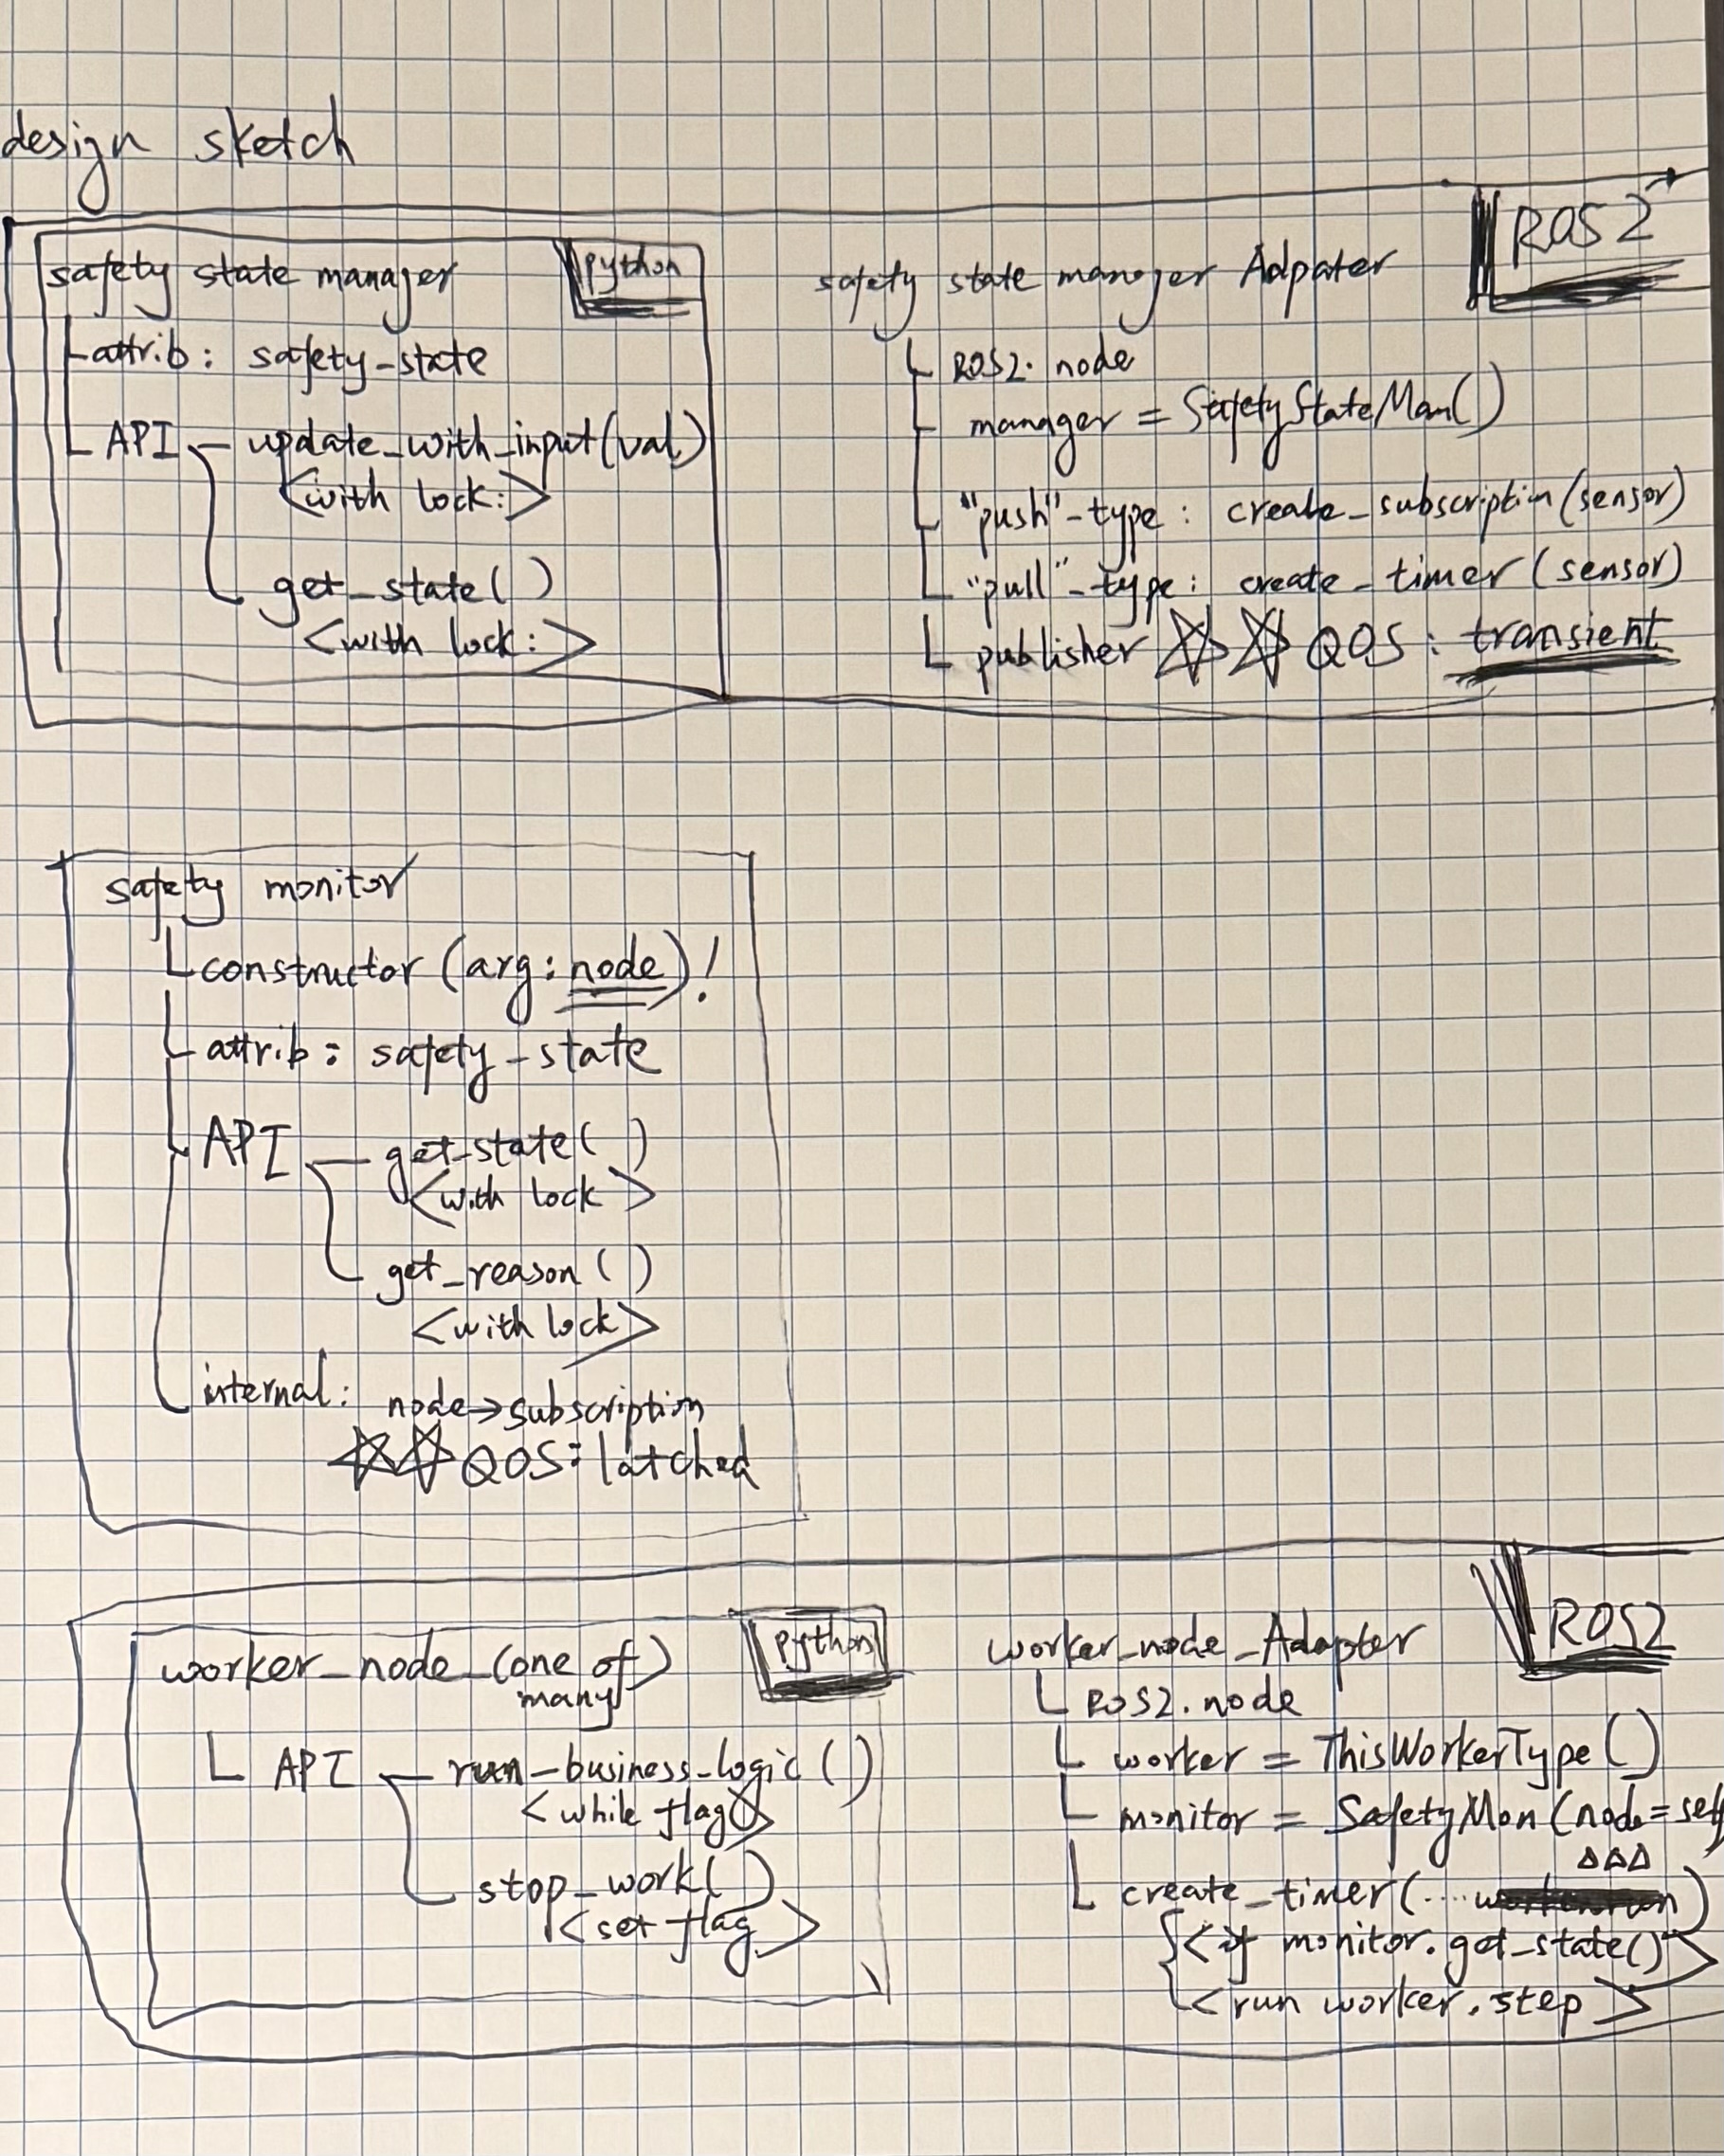 design sketch
safety state manager
python
attrib: safety_state
API - update_with_input(val)
<with lock:>
get_state( )
<with lock:>
ROS2
safety state manager Adpater
ROS2. node
manager = SafetyStateMan()
"push"-type: create_subscription(sensor)
"pull"-type: create_timer(sensor)
publisher ☆☆ QOS: transient
safety monitor
constructor (arg: node)!
attrib: safety_state
API - get_state( )
<with lock>
get_reason ( )
<with lock>
internal: node→subscription
☆☆ QOS: latched
worker_node_(one of many)
python
API - run_business_logic ( )
<while flag>
stop_work( )
<set flag>
ROS2
worker_node_Adapter
ROS2. node
worker = ThisWorkerType()
monitor = SafetyMon(node=self
△△△
create_timer(.... )
<if monitor.get_state()>
<run worker.step>